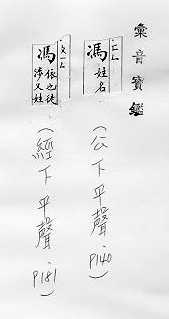 彙音寶鑑
馮 姓名
(公下平聲.P140)
馮 依也徒涉又姓
(經下平聲.P181)